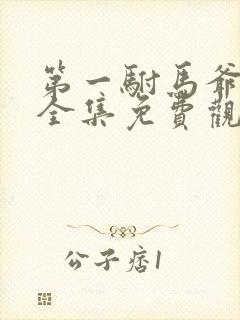 第一駙馬爺
全集免費觀
公子痞1